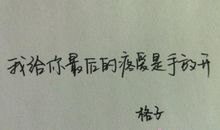 我给你最后的疼爱是手放开
格子